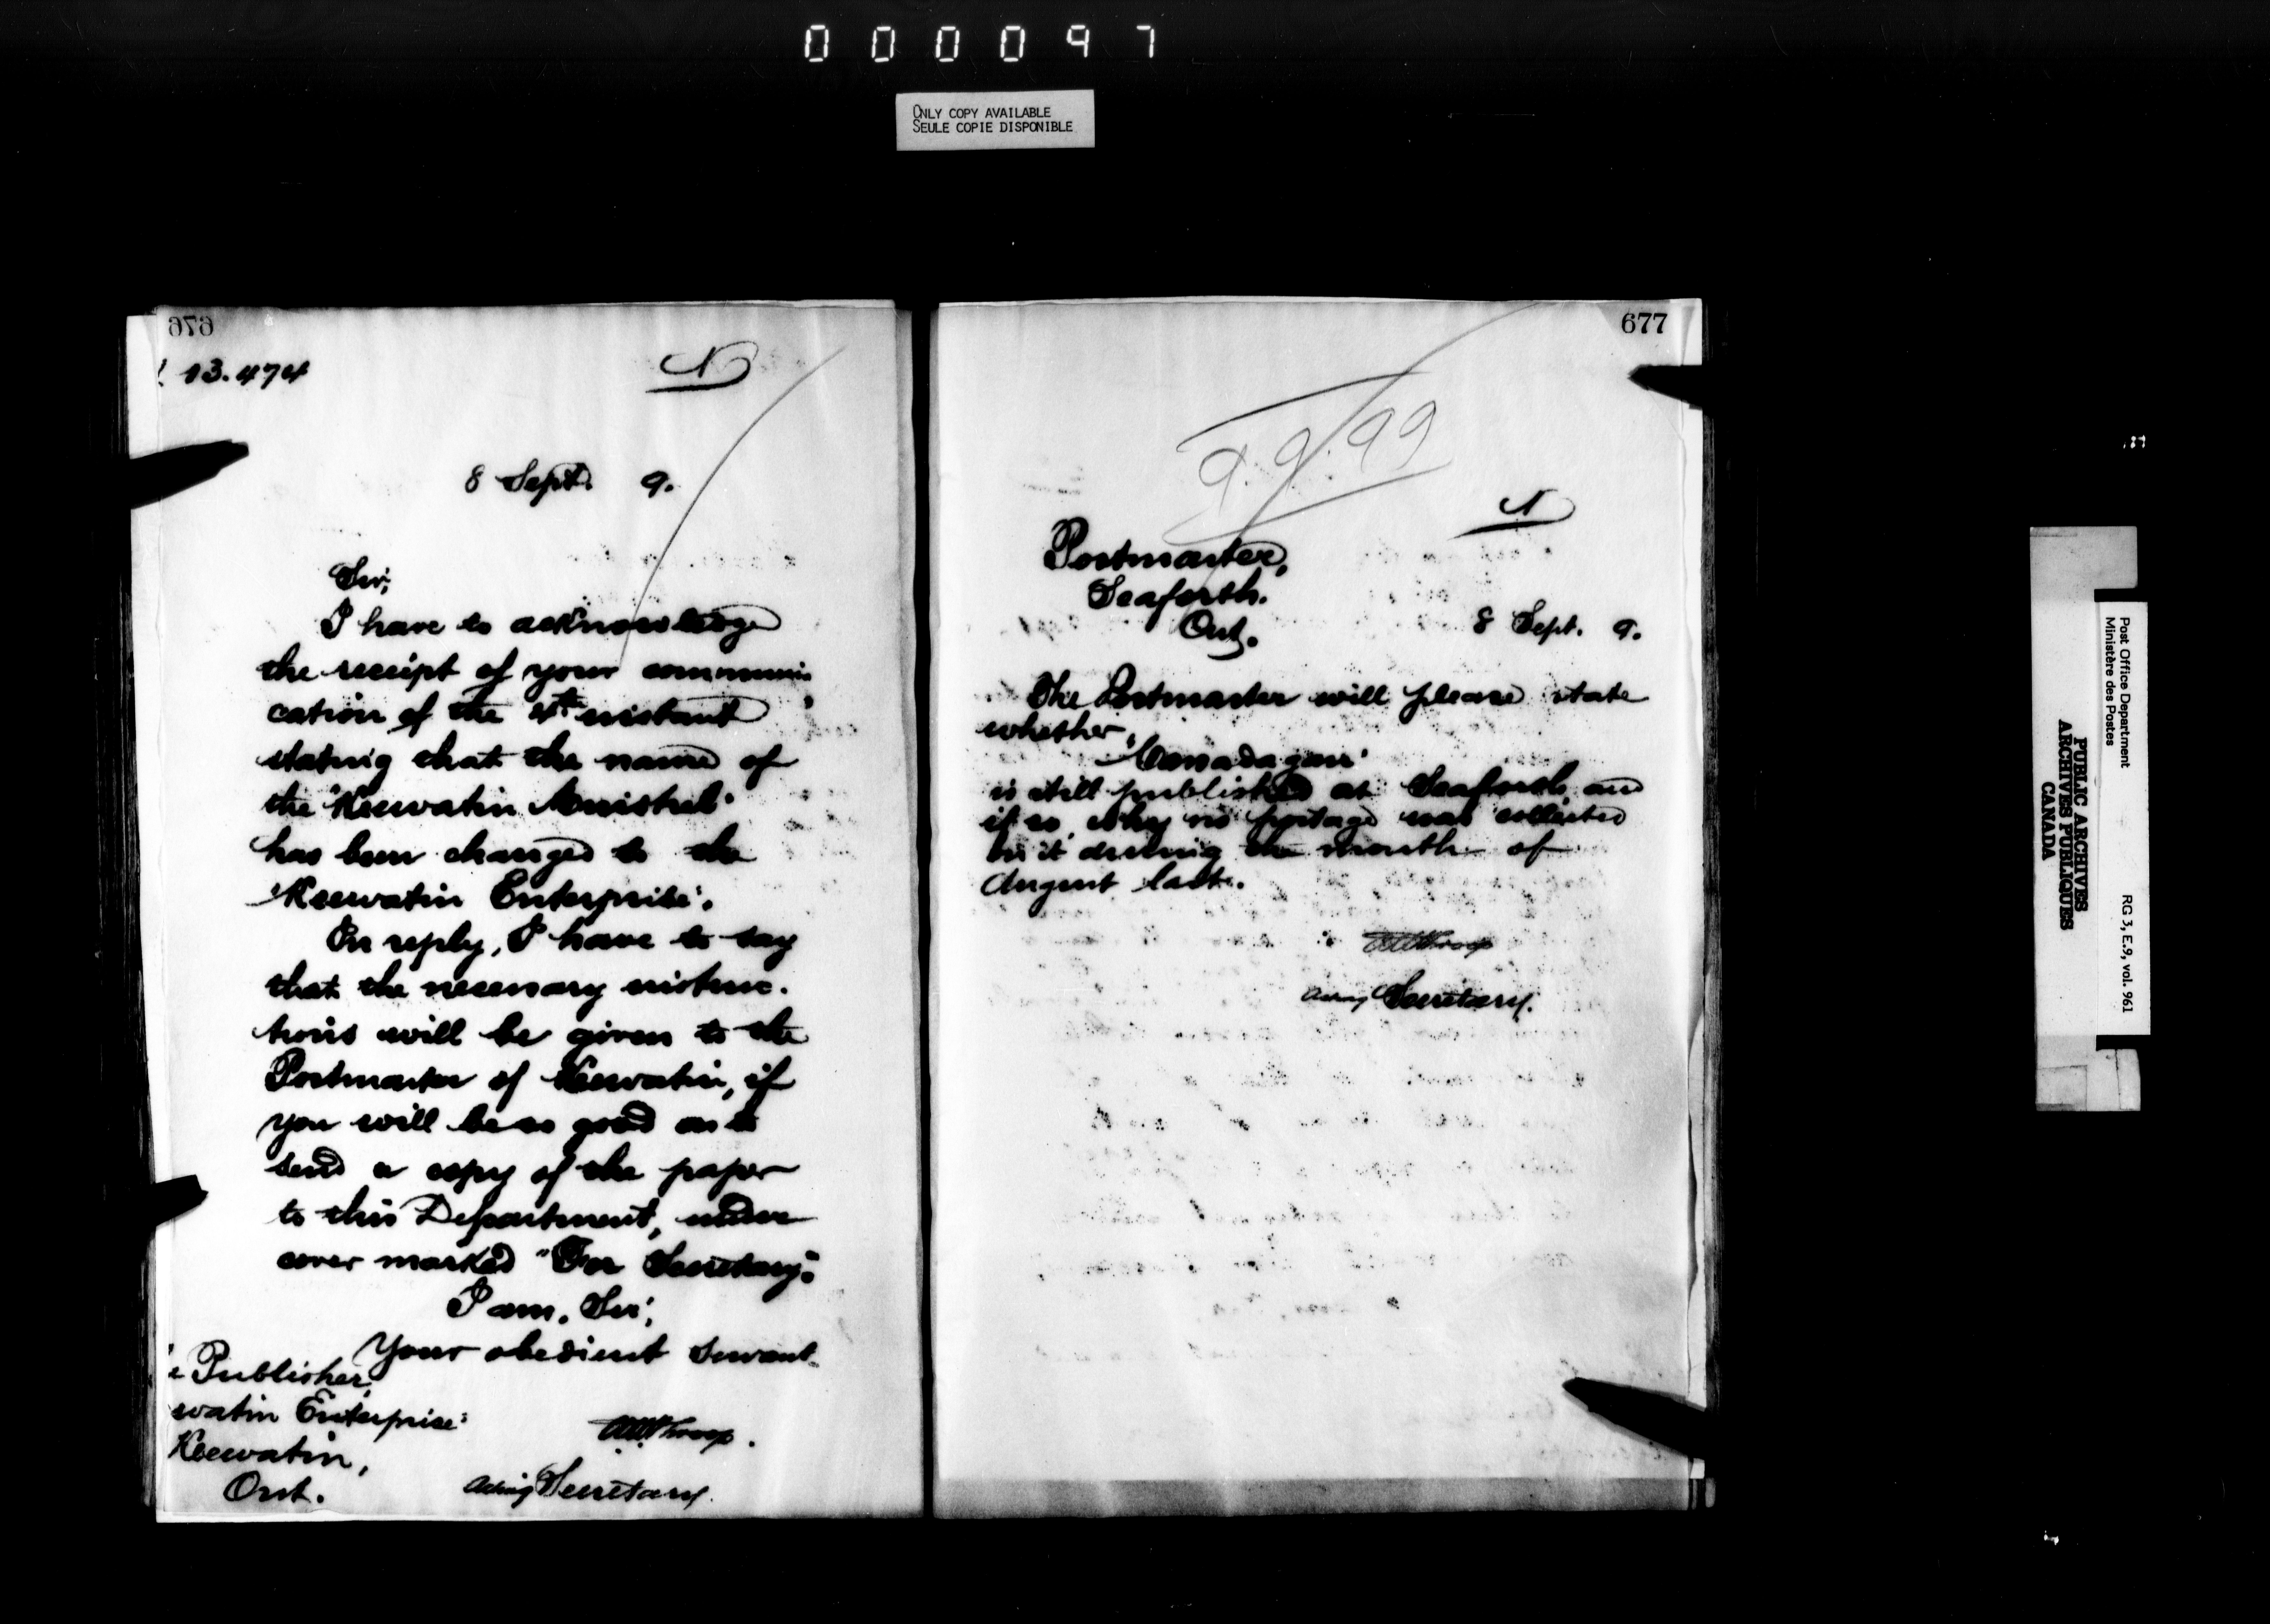 000097
ONLY COPY AVAILABLE
SEULE COPIE DISPONIBLE
676
13.474
N
8 Sept. 9.
Sir,
I have to acknowledge
the receipt of your communi-
cation of the 4th instant
stating that the name of
the "Keewatin Minstrel"
has been changed to the
"Keewatin Enterprise".
In reply, I have to say
that the necessary instruc-
tions will be given to the
Postmaster of Keewatin, if
you will be so good as to
send a copy of the paper
to this Department, under
cover marked "For Secretary".
I am, Sir,
Your obedient Servant
e Publisher,
watin Enterprise"
Keewatin,
Ont.
Acting Secretary.
677
9.9.99
N
Postmaster,
Seaforth.
Ont.
8 Sept. 9.
The Postmaster will please state
whether,
is still published at Seaforth and
if so, why no postage was collected
on it during the month of
August last.
Acting Secretary.
Post Office Department
Ministère des Postes
RG 3, E.9, vol. 961
PUBLIC ARCHIVES
ARCHIVES PUBLIQUES
CANADA